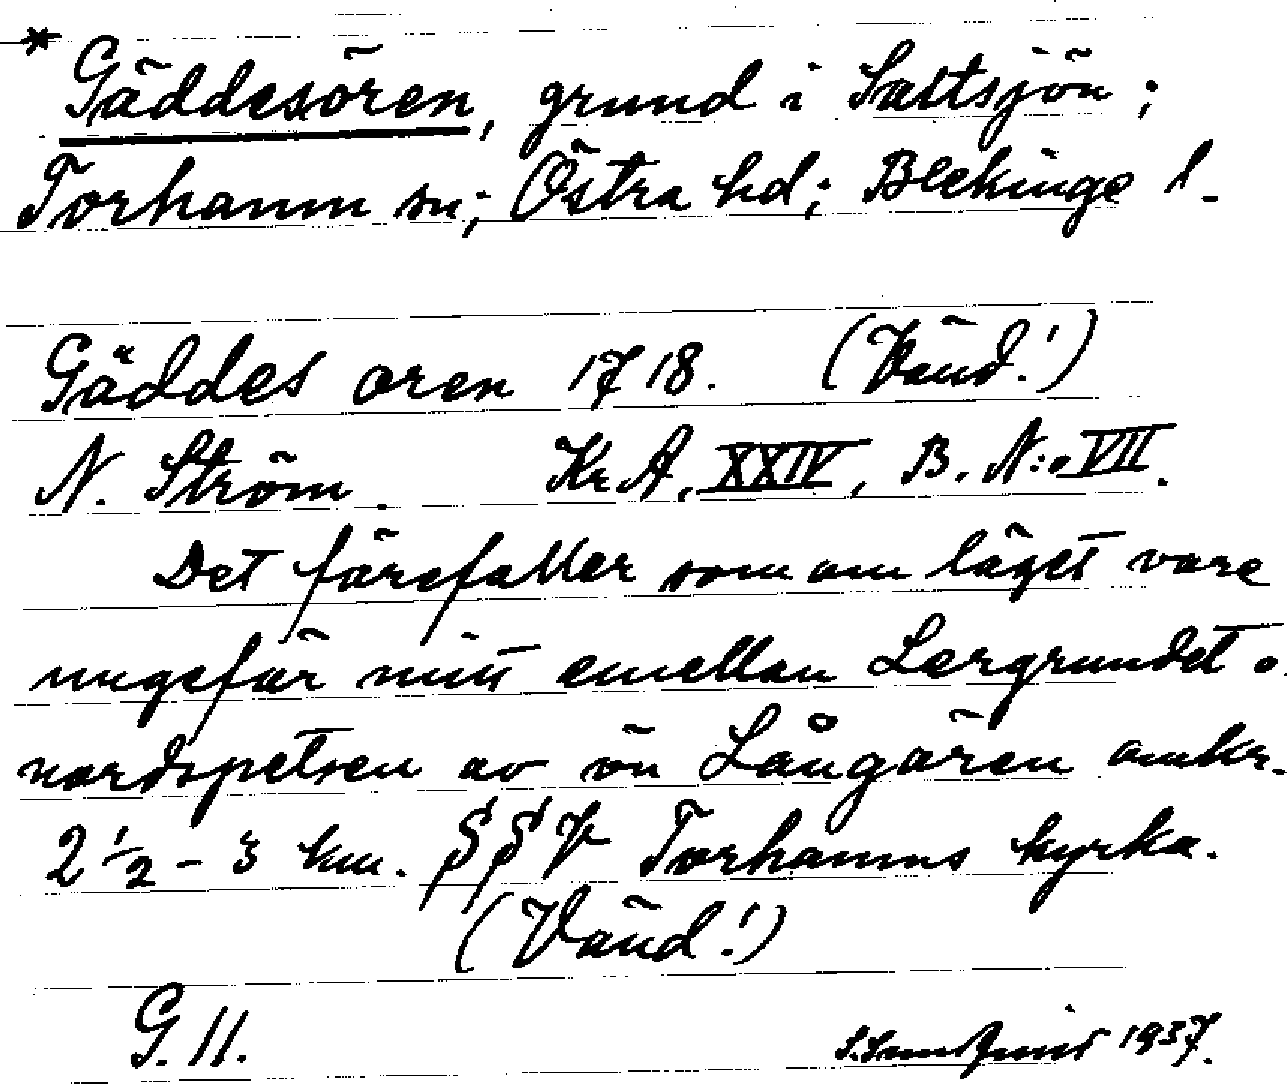 * Gäddesören, grund i Saltsjön;
Torhamn sn; Östra hd; Blekinge l.
Gäddes oren 1718. (Vänd!)
N. Ström. Kr. A. XXIV, B. N:o VII.
Det förefaller som om läget vore
ungefär mitt emellan Lergrundet o.
nordspetsen av ön Långören omkr.
2 1/2 - 3 km. SSV Torhamns kyrka.
(Vänd!)
G. 11. 1937.